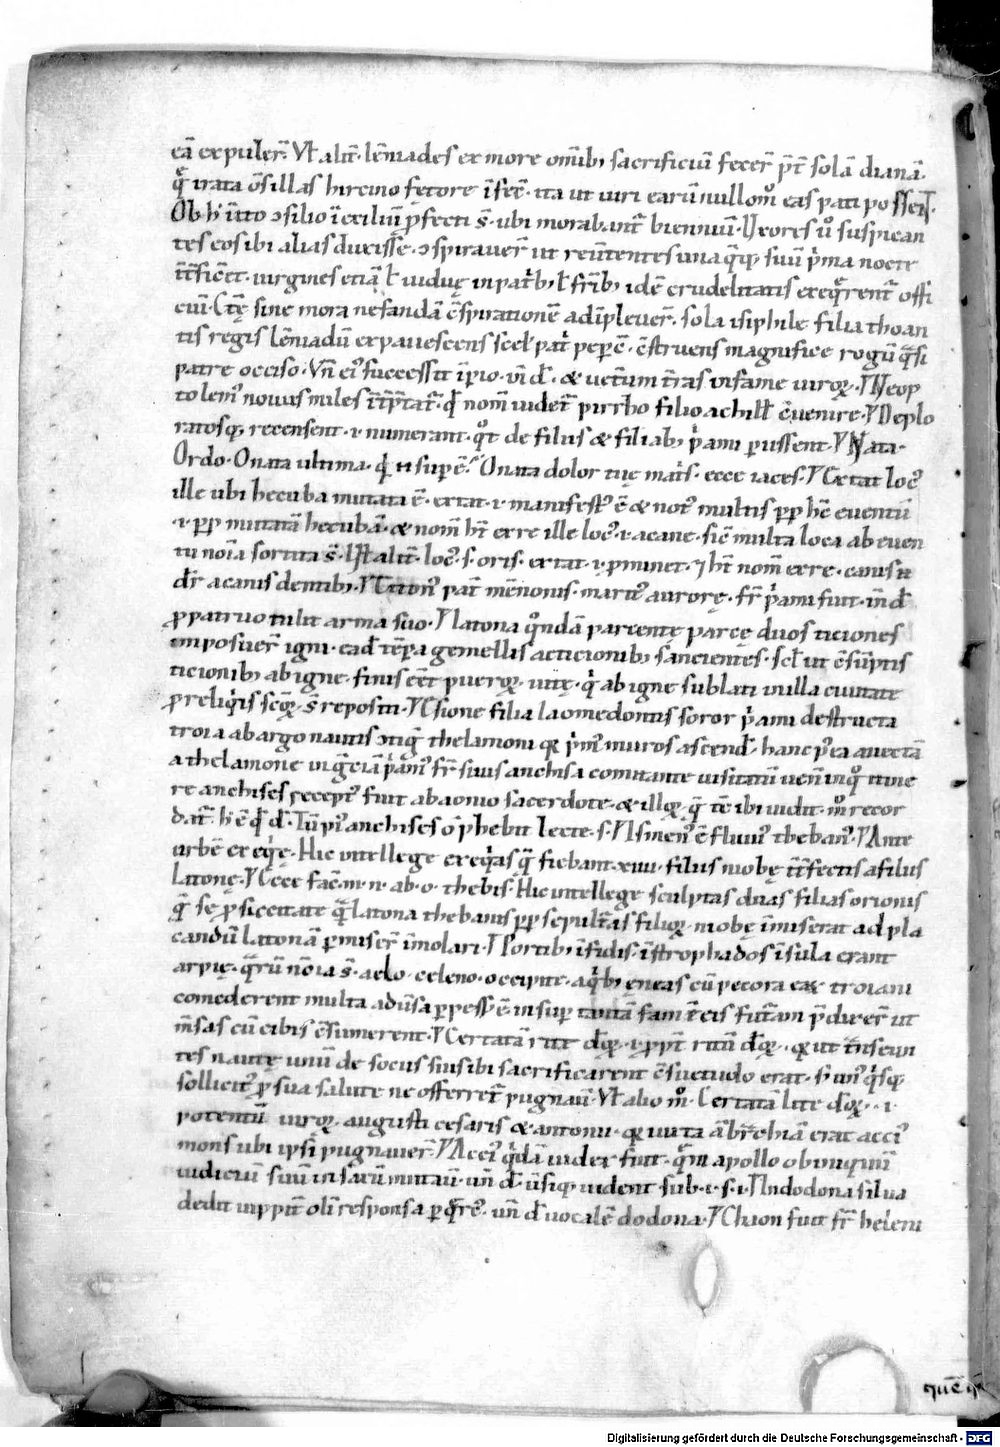 eā expuler̄. Vł alit̄. lēniades ex more omībꝯ sacrificiū fecer̄ p̄t̄ solā dianā.
q̄ irata ōs illas hircino fętore īfec̄. ita ut uiri earū nullo mͦ eas pati possent.
Ob h̄ īito ɔsilio ī exiliū p̄fecti s̄. ubi morabant̄ bienniū. Vxores ůo suspican
tes eos ibi alias duxisse. ɔspirauer̄ ut reūtentes una q̄q suū p̄ma nocte
īt̄ficēt. uirgines etiā ł uiduę in patribꝯ ł fr̄ibꝯ idē crudelitatis exeq̄rent̄ offi
ciū. Ctę sine mora nefandā c̄spirationē adīpleuer̄. sola isiphile filia thoan
tis regis lēniadū expauescens scel patͥ peperc̄. c̄struens magnifice rogū q̄si
patre occiso. Vn̄ eiꝰ successit īperio. un̄ d̄. & uetitum t̄ras infame uiroꝝ. Neop
tolemꝰ nouus miles īt̄p̄tat̄. q̄ nom̄ uidet̄ pirrho filio achill c̄uenire. Deplo
ratosq recensent. i. numerant. qͦt de filiis & filiabꝯ pͥami perissent. Nata.
Ordo. O nata ultima. q̄ n̄ supē. O nata dolor tuę matͥs. ecce iaces. Extat locꝰ
ille ubi hecuba mutata ē. extat. i. manifestꝰ ē & notꝰ multis pp̄ hc̄ euentū
.i. pp̄ mutatā hecubā. & nom̄ ht̄ ex re ille locꝰ. i. a cane. sic̄ multa loca ab euen
tu noīa sortita s̄. Vł alit̄. locꝰ. s. oris. extat. i. p̄minet. ⁊ ht̄ nom̄ ex re. canis n̄
dr̄ a canis dentibꝯ. Titonꝰ pat̄ mēnonis. maritꝰ aurorę. fr̄ pͥami fuit. īn d̄
p̄ patruo tulit arma suo. Latona qͦndā pariente parcę duos ticiones
imposuer̄ igni. ead̄ tēpora gemellis ac ticionibꝯ sancientes. scł ut c̄sūptis
ticionibꝯ ab igne. finis ēet pueroꝝ uitę. qͥ ab igne sublati in illa ciuitate
p̄ reliqͥis scōꝝ s̄ repositi. Esione filia laomedontis soror pͥami destructa
troia ab argonautis ɔtiḡ thelamoni qꝛ pͥmꝰ muros ascend̄. hanc pͦea auectā
a thelamone in ḡciā pͥamꝰ fr̄ suus anchisa comitante uisitatū uen̄ in qͦ itine
re anchises receptꝰ fuit ab aonio sacerdote. & illoꝝ q̄ tē ibi uidit. mͦ recor
dat̄. h̄ ē q̄ d̄. Tū piꝰ anchises o phebii lecte. s. Ismenꝰ ē fluuiꝰ thebanꝰ. Ante
urbē exeq̄ę. Hic intellege exeqͥas q̄ fiebant .xiiii. filiis niobę īt̄fectis a filiis
Latonę. Ecce fac̄. m. n. ab. o. thebis. Hic intellege sculptas duas filias orionis
q̄ se p̄ siccitate q̄ latona thebanis pp̄ sepultas filioꝝ niobę īmiserat ad pla
candū latonā permiser̄ īmolari. Portibꝯ īfidis. ī strophados īsula erant
arpię. q̄rū noīa s̄. aelo. celeno. occipite. a qͥbꝯ ęneas cū pecora eaꝝ troiani
comederent multa adūsa perpess̄ ē. insuper tantā famē eis futurā p̄dixer̄ ut
m̄sas cū cibis c̄sumerent. Certatā lite doꝝ. i. p̄p̄t̄ ritū doꝝ. qꝛ ut t̄nseun
tes nautę unū de sociis siuisibi sacrificarent c̄suetudo erat. s̄ unꝰ qͥsq
sollicitꝰ p̄ sua salute ne offerret̄ pugnaū. Vł alio mͦ. Certatā lite doꝝ. .i.
potentū uiroꝝ. augusti cesaris & antonii. qꝛ iuxta ābrachiā erat acciꝰ
mons ubi ipsi pugnauer̄. Acciꝰ qͥdā iudex fuit. q̄m apollo ob iniquū
iudiciū suū in saxū mutaū. un̄ d̄. ūsiq uident sub. i. s. i. In dodona silua
dedit iuppit̄ oli responsa p̄ q̄rcꝰ. un̄ d̄ uocalē dodona. Chaon fuit fr̄ heleni
Digitalisierung gefördert durch die Deutsche Forschungsgemeinschaft - DFG